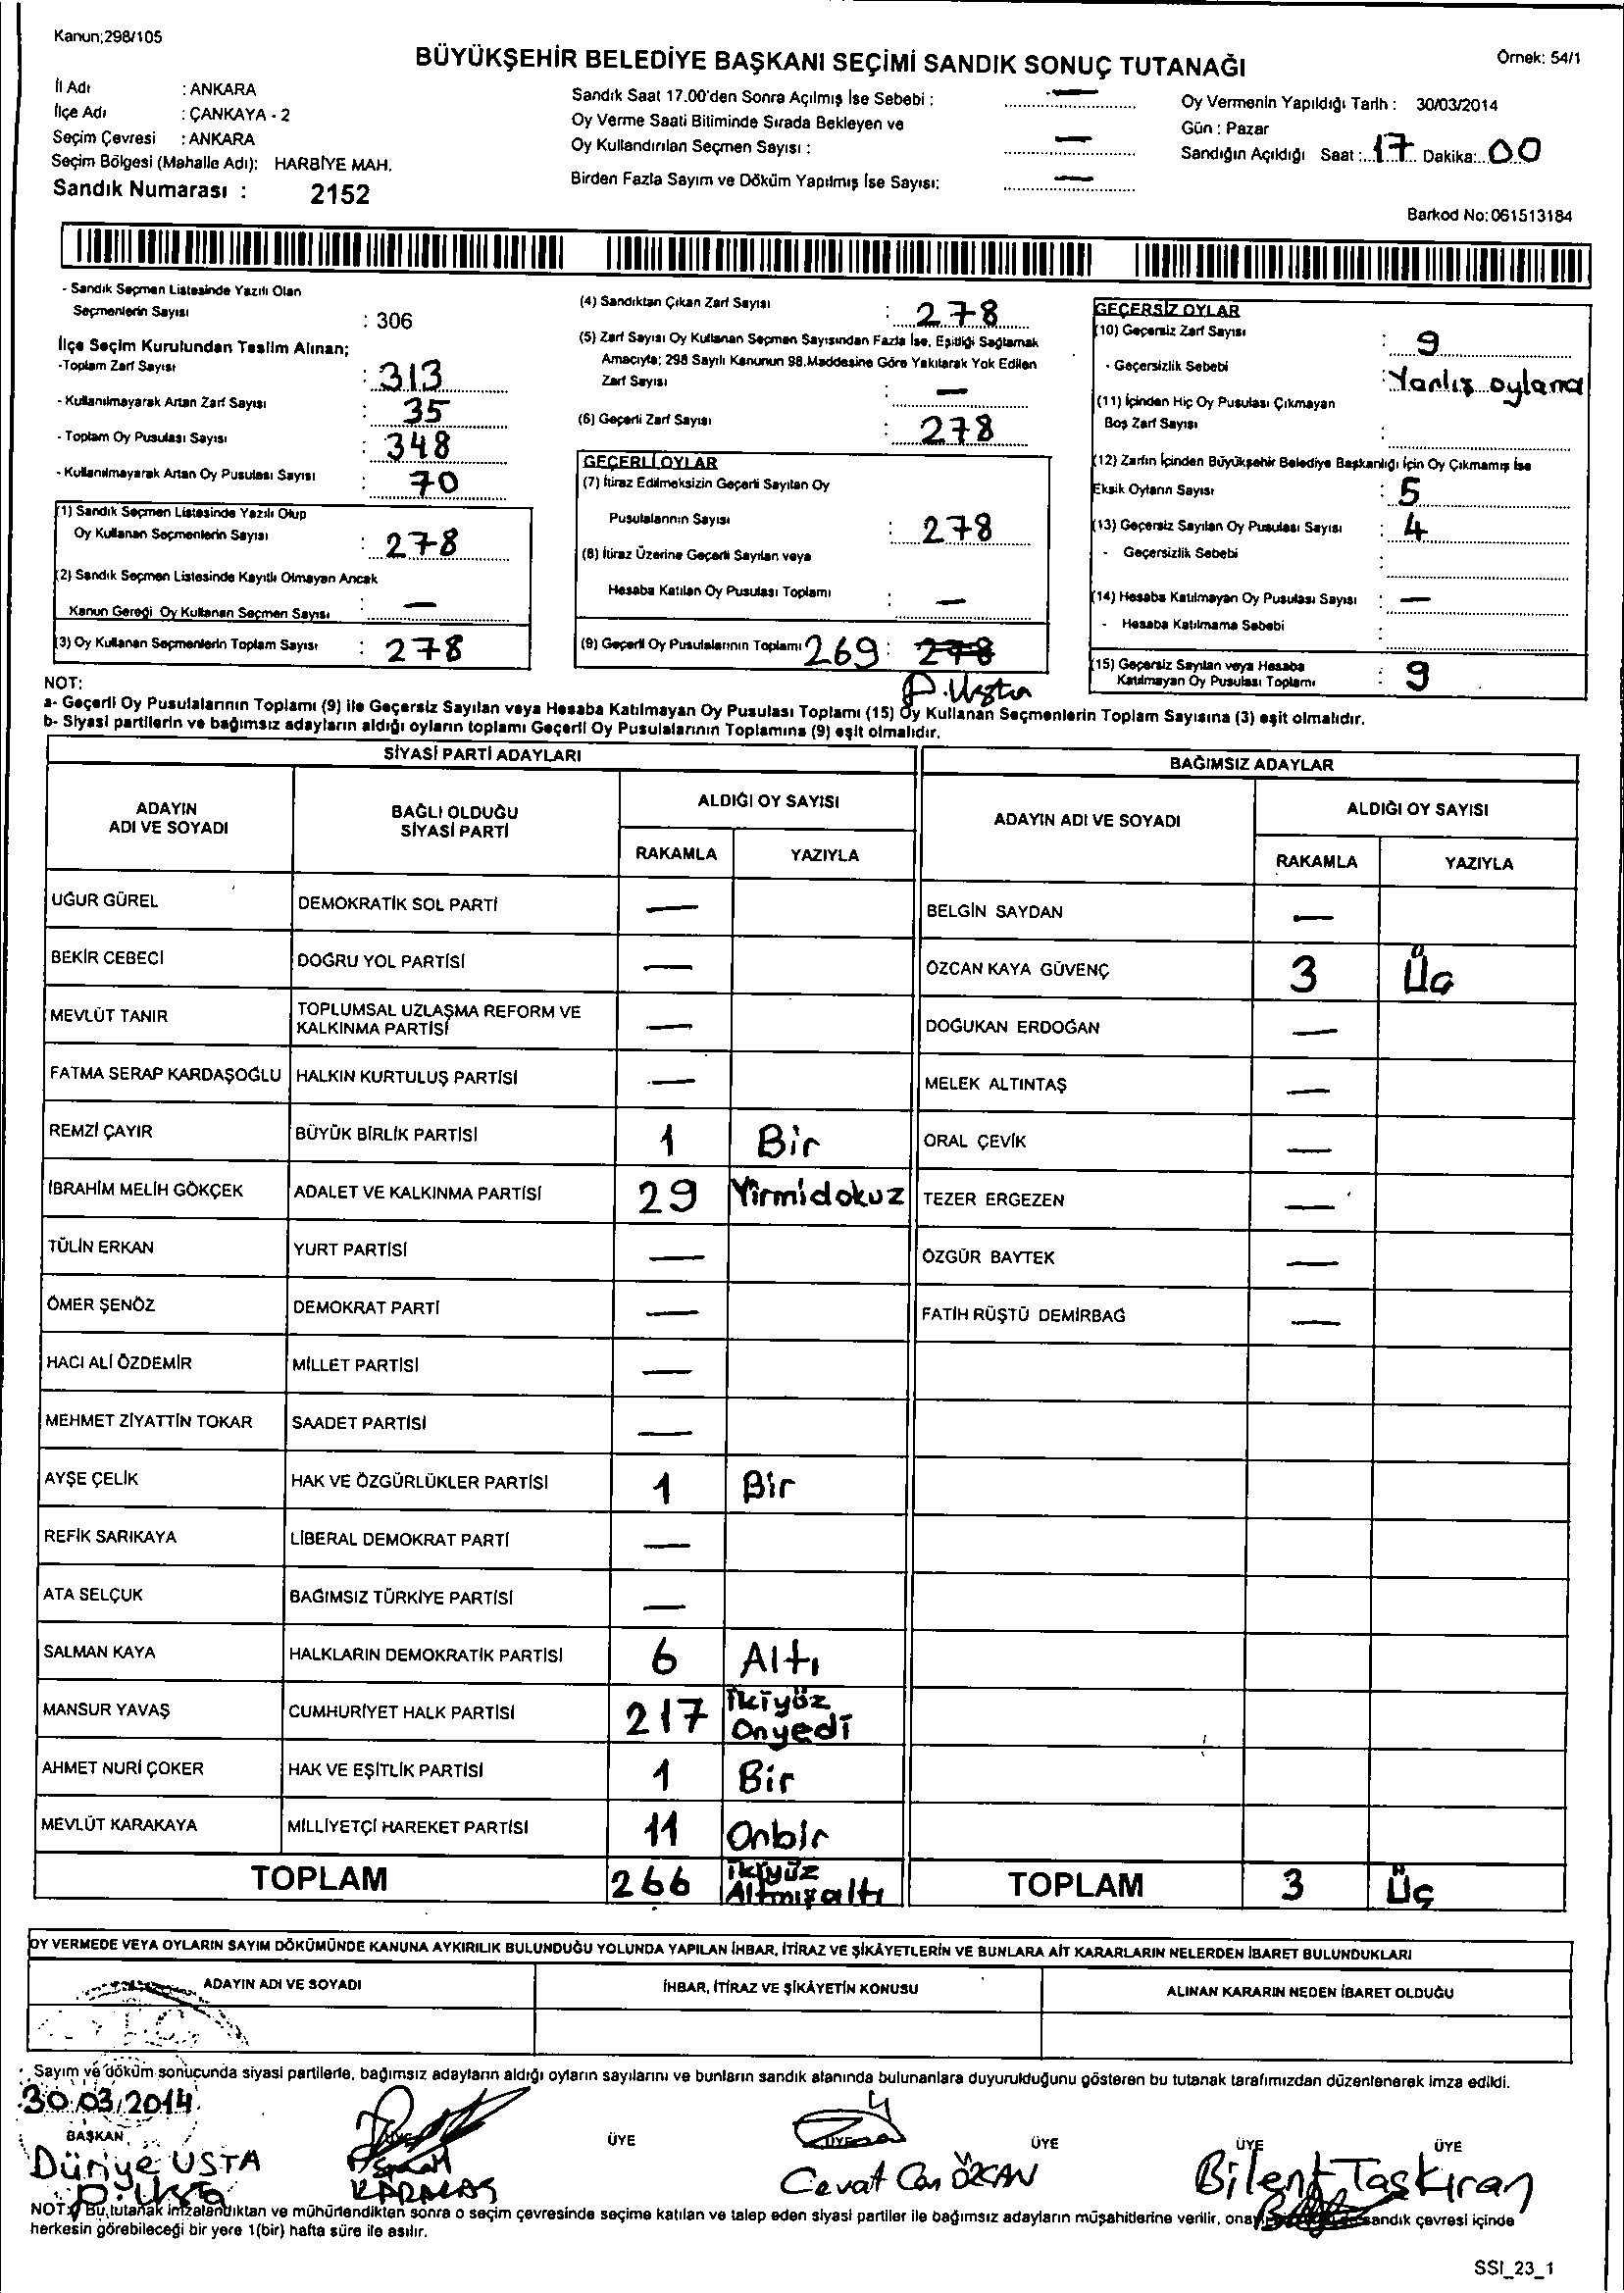 Kanun;298/105
BÜYÜKŞEHİR BELEDİYE BAŞKANI SEÇİMİ SANDIK SONUÇ TUTANAĞI
Örnek: 54/1
İl Adı : ANKARA
İlçe Adı : ÇANKAYA - 2
Seçim Çevresi : ANKARA
Seçim Bölgesi (Mahalle Adı): HARBİYE MAH.
Sandık Numarası : 2152
Sandık Saat 17.00'den Sonra Açılmış İse Sebebi : —
Oy Verme Saati Bitiminde Sırada Bekleyen ve
Oy Kullandırılan Seçmen Sayısı : —
Birden Fazla Sayım ve Döküm Yapılmış İse Sayısı: —
Oy Vermenin Yapıldığı Tarih : 30/03/2014
Gün : Pazar
Sandığın Açıldığı Saat : 17 Dakika: 00
Barkod No: 061513184
- Sandık Seçmen Listesinde Yazılı Olan
Seçmenlerin Sayısı : 306
İlçe Seçim Kurulundan Teslim Alınan;
-Toplam Zarf Sayısı : 313
- Kullanılmayarak Artan Zarf Sayısı : 35
- Toplam Oy Pusulası Sayısı : 348
- Kullanılmayarak Artan Oy Pusulası Sayısı : 70
(1) Sandık Seçmen Listesinde Yazılı Olup
Oy Kullanan Seçmenlerin Sayısı : 278
(2) Sandık Seçmen Listesinde Kayıtlı Olmayan Ancak
Kanun Gereği Oy Kullanan Seçmen Sayısı : —
(3) Oy Kullanan Seçmenlerin Toplam Sayısı : 278
(4) Sandıktan Çıkan Zarf Sayısı : 278
(5) Zarf Sayısı Oy Kullanan Seçmen Sayısından Fazla İse, Eşitliği Sağlamak
Amacıyla; 298 Sayılı Kanunun 98.Maddesine Göre Yakılarak Yok Edilen
Zarf Sayısı : —
(6) Geçerli Zarf Sayısı : 278
GEÇERLİ OYLAR
(7) İtiraz Edilmeksizin Geçerli Sayılan Oy
Pusulalarının Sayısı : 278
(8) İtiraz Üzerine Geçerli Sayılan veya
Hesaba Katılan Oy Pusulası Toplamı : —
(9) Geçerli Oy Pusulalarının Toplamı 269 : 278
D. Usta
GEÇERSİZ OYLAR
(10) Geçersiz Zarf Sayısı : 9
- Geçersizlik Sebebi : Yanlış oylama
(11) İçinden Hiç Oy Pusulası Çıkmayan
Boş Zarf Sayısı :
(12) Zarfın İçinden Büyükşehir Belediye Başkanlığı İçin Oy Çıkmamış İse
Eksik Oyların Sayısı : 5
(13) Geçersiz Sayılan Oy Pusulası Sayısı : 4
- Geçersizlik Sebebi :
(14) Hesaba Katılmayan Oy Pusulası Sayısı : —
- Hesaba Katılmama Sebebi :
(15) Geçersiz Sayılan veya Hesaba
Katılmayan Oy Pusulası Toplamı : 9
NOT:
a- Geçerli Oy Pusulalarının Toplamı (9) ile Geçersiz Sayılan veya Hesaba Katılmayan Oy Pusulası Toplamı (15) Oy Kullanan Seçmenlerin Toplam Sayısına (3) eşit olmalıdır.
b- Siyasi partilerin ve bağımsız adayların aldığı oyların toplamı Geçerli Oy Pusulalarının Toplamına (9) eşit olmalıdır.
SİYASİ PARTİ ADAYLARI
BAĞIMSIZ ADAYLAR
ADAYIN ADI VE SOYADI
BAĞLI OLDUĞU SİYASİ PARTİ
ALDIĞI OY SAYISI
RAKAMLA YAZIYLA
ADAYIN ADI VE SOYADI
ALDIĞI OY SAYISI
RAKAMLA YAZIYLA
UĞUR GÜREL DEMOKRATİK SOL PARTİ — BELGİN SAYDAN —
BEKİR CEBECİ DOĞRU YOL PARTİSİ — ÖZCAN KAYA GÜVENÇ 3 Üç
MEVLÜT TANIR TOPLUMSAL UZLAŞMA REFORM VE KALKINMA PARTİSİ — DOĞUKAN ERDOĞAN —
FATMA SERAP KARDAŞOĞLU HALKIN KURTULUŞ PARTİSİ — MELEK ALTINTAŞ —
REMZİ ÇAYIR BÜYÜK BİRLİK PARTİSİ 1 Bir ORAL ÇEVİK —
İBRAHİM MELİH GÖKÇEK ADALET VE KALKINMA PARTİSİ 29 Yirmidokuz TEZER ERGEZEN —
TÜLİN ERKAN YURT PARTİSİ — ÖZGÜR BAYTEK —
ÖMER ŞENÖZ DEMOKRAT PARTİ — FATİH RÜŞTÜ DEMİRBAĞ —
HACI ALİ ÖZDEMİR MİLLET PARTİSİ —
MEHMET ZİYATTİN TOKAR SAADET PARTİSİ —
AYŞE ÇELİK HAK VE ÖZGÜRLÜKLER PARTİSİ 1 Bir
REFİK SARIKAYA LİBERAL DEMOKRAT PARTİ —
ATA SELÇUK BAĞIMSIZ TÜRKİYE PARTİSİ —
SALMAN KAYA HALKLARIN DEMOKRATİK PARTİSİ 6 Altı
MANSUR YAVAŞ CUMHURİYET HALK PARTİSİ 217 İkiyöz Onyedi
AHMET NURİ ÇOKER HAK VE EŞİTLİK PARTİSİ 1 Bir
MEVLÜT KARAKAYA MİLLİYETÇİ HAREKET PARTİSİ 11 Onbir
TOPLAM 266 ikiyüz Altmışaltı TOPLAM 3 Üç
OY VERMEDE VEYA OYLARIN SAYIM DÖKÜMÜNDE KANUNA AYKIRILIK BULUNDUĞU YOLUNDA YAPILAN İHBAR, İTİRAZ VE ŞİKÂYETLERİN VE BUNLARA AİT KARARLARIN NELERDEN İBARET BULUNDUKLARI
ADAYIN ADI VE SOYADI İHBAR, İTİRAZ VE ŞİKÂYETİN KONUSU ALINAN KARARIN NEDEN İBARET OLDUĞU
Sayım ve döküm sonucunda siyasi partilerle, bağımsız adayların aldığı oyların sayılarını ve bunların sandık alanında bulunanlara duyurulduğunu gösteren bu tutanak tarafımızdan düzenlenerek imza edildi.
30.03.2014
BAŞKAN ÜYE ÜYE ÜYE ÜYE ÜYE
Düriye USTA
D. Usta
KARDAŞ
Cevat Can ÖZCAN
Bilent Taşkıran
NOT: Bu tutanak imzalandıktan ve mühürlendikten sonra o seçim çevresinde seçime katılan ve talep eden siyasi partiler ile bağımsız adayların müşahitlerine verilir, sandık çevresi içinde
herkesin görebileceği bir yere 1(bir) hafta süre ile asılır.
SSI_23_1